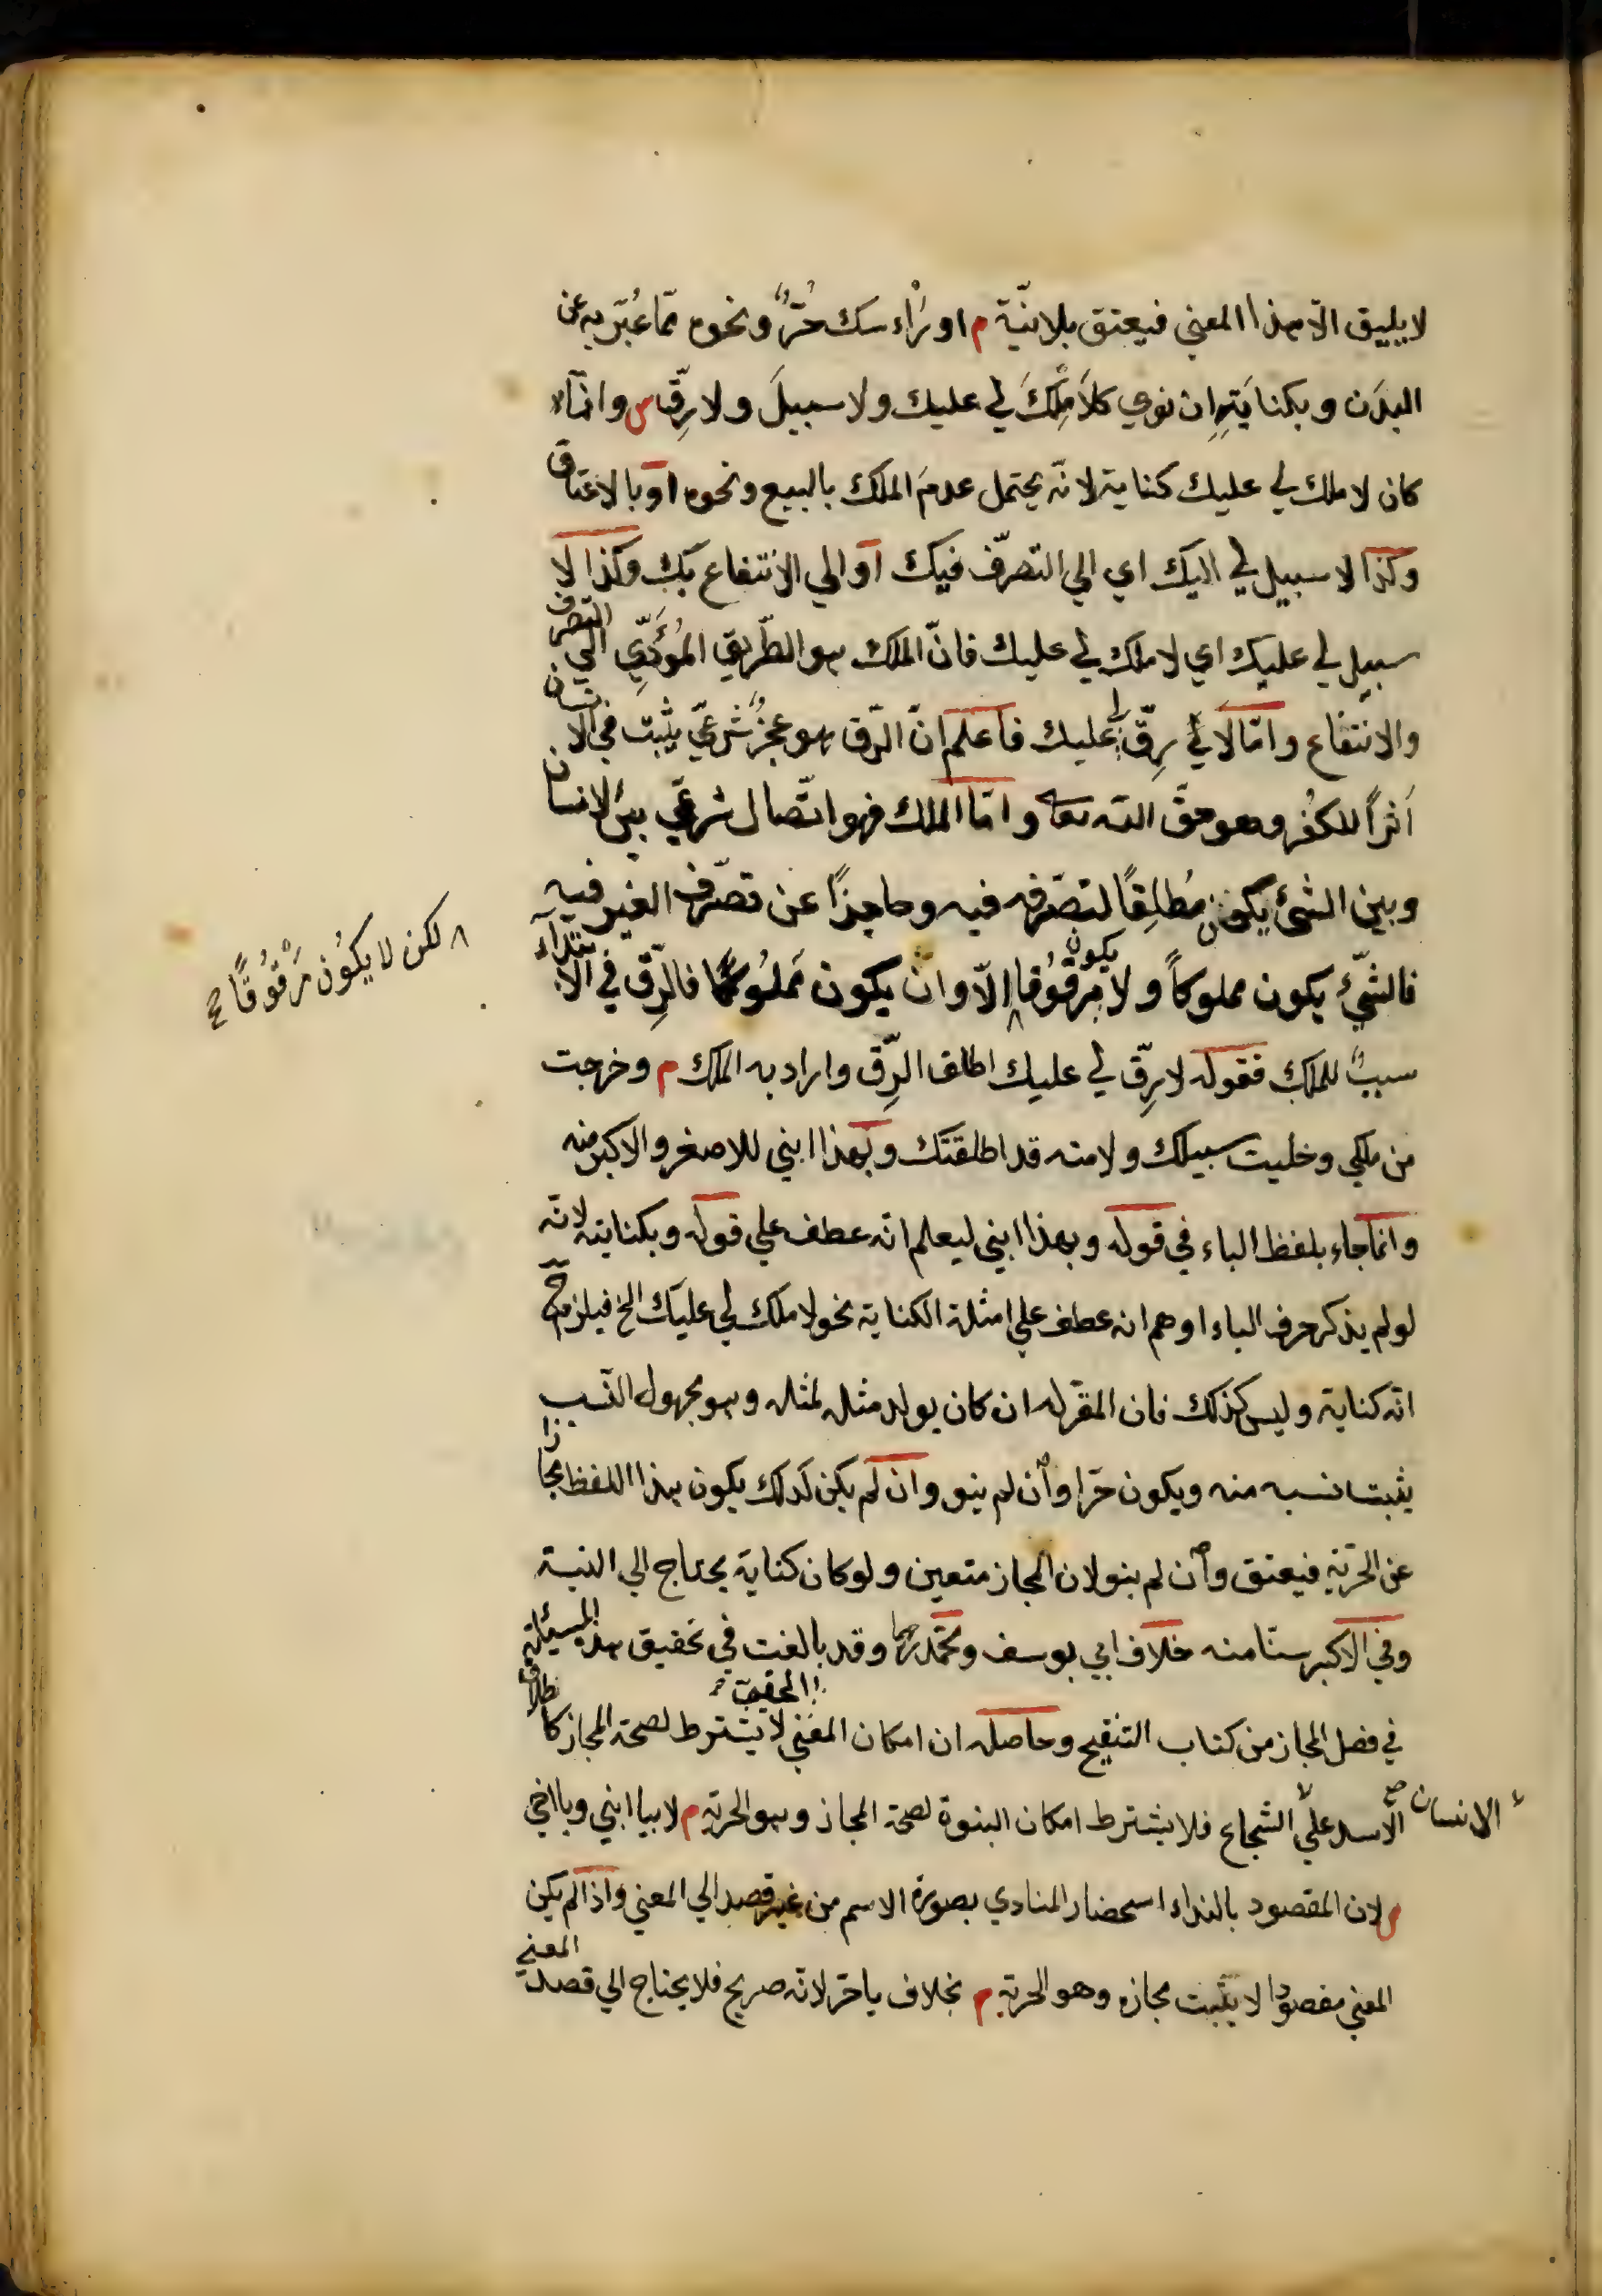 لا يليق الّا بهذا المعني فيعتق بلا نيّة م او رأسك حُرٌّ ونحوه ممّا عُبّر به عن
البدَن وبكنايَتِهِ ان نوي كلَا مِلْكَ لي عليك ولا سبيلَ ولا رِقّ س وانّما
كان لا ملك لي عليك كناية لانّه يحتمل عدمَ الملك بالبيع ونحوه او بالاعتاق
وكذا لا سبيل لي اليك اي الي التصرّف فيك او الي الانتفاع بك وكذا لا
سبيل لي عليك اي لا ملك لي عليك فانّ الملك هو الطّريق المُؤَدِّي الي التصرف
والانتفاع وامّا لا رِقّ لي عليك فاعلم انّ الرّق هو عجزٌ شرعيّ يثبت في الانسان
اَثراً للكفُر وهو حقّ الله تعا وامّا الملك فهو اتّصال شرعيّ بين الانسان
وبين الشئ يكون مُطلِقًا لتصرّفه فيه وحاجزًا عن تصرّف الغير فيه
فالشّئ يكون مملوكاً ولا يكون مرقُوقا الّا وان يكون مَملُوكًا فالرِّق في الابتداء
٨ لكن لا يكوُن مَرْقوُقًا صح
سببٌ للملك فقوله لا رِقّ لي عليك اطلق الرِّق واراد به الملك م وخرجت
من ملكي وخليت سبيلك ولامته قد اطلقتك وبهذا ابني للاصغر والاكبر منه
وانما جاء بلفظ الباء في قوله وبهذا ابني ليعلم انّه عطف علي قوله وبكنايته لانّه
لو لم يذكر حرف الباء اوهم انه عطف علي امثلة الكناية نحو لا ملك لي عليك الخ فيلزم ح
انّه كناية وليس كذلك فان المقرّ له ان كان يولد مثله لمثله وهو مجهول النّسب
يثبت نسبه منه ويكون حرّا وان لم ينو وان لم يكن كذلك يكون بهذا اللفظ مجازا
عن الحريّة فيعتق وان لم ينو لان المجاز متعين ولو كان كناية يحتاج الي النية
وفي الاكبر سنّا منه خلاف ابي يوسف ومحمّد رحمهما وقد بالغت في تحقيق هذه المسئلة
في فصل المجاز من كتاب التنقيح وحاصله ان امكان المعني الحقيقي لا يشترط لصحة المجاز كاطلاق
الاسد علي الانسان الشجاع فلا يشترط امكان البنوة لصحة المجاز وهو الحرية م لا بيا ابني ويا اخي
س لان المقصود بالنداء استحضار المنادي بصورة الاسم من غير قصد الي المعني واذا لم يكن
المعني مقصودا لا يثبت مجازه وهو الحرية م بخلاف يا حرّ لانّه صريح فلا يحتاج الي قصد المعني